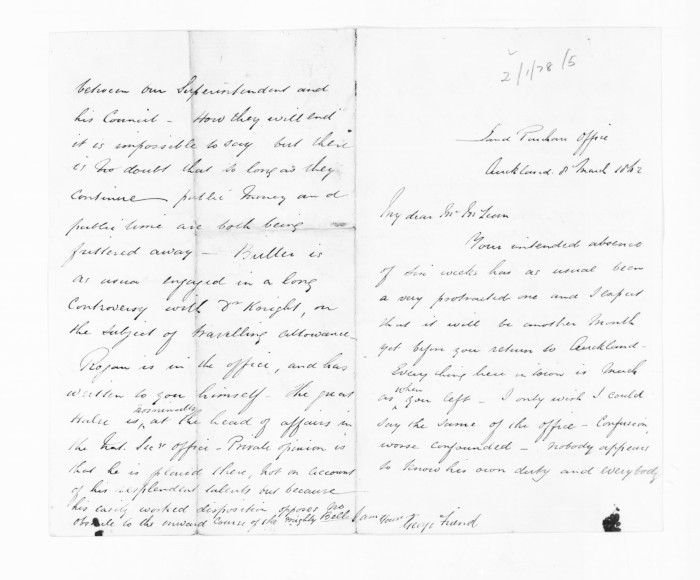 2/1/78/5
Land Purchase Office
Auckland. 8 March 1862
My dear Mr McLean
Your intended absence
of six weeks has as usual been
a very protracted one and I expect
that it will be another month
yet before you return to Auckland.
Everything here in town is much
as when you left - I only wish I could
say the same of the office - Confusion
worse confounded - nobody appears
to know his own duty and everybody
between our Superintendent and
his Council - How they will end
it is impossible to say but there
is no doubt that so long as they
continue public money and
public time are both being
frittered away - Buller is
as usual engaged in a long
controversy with Dr Knight, on
the subject of travelling allowance
Rogan is in the office, and has
written to you himself. The great
Halse is assumedly at the head of affairs in
the Nat. Secy's office - Private opinion is
that he is placed there, not on account
of his resplendent talents but because
his easily worked disposition opposes no
obstacle to the onward course of the mighty Bell
I am Yours
Friend